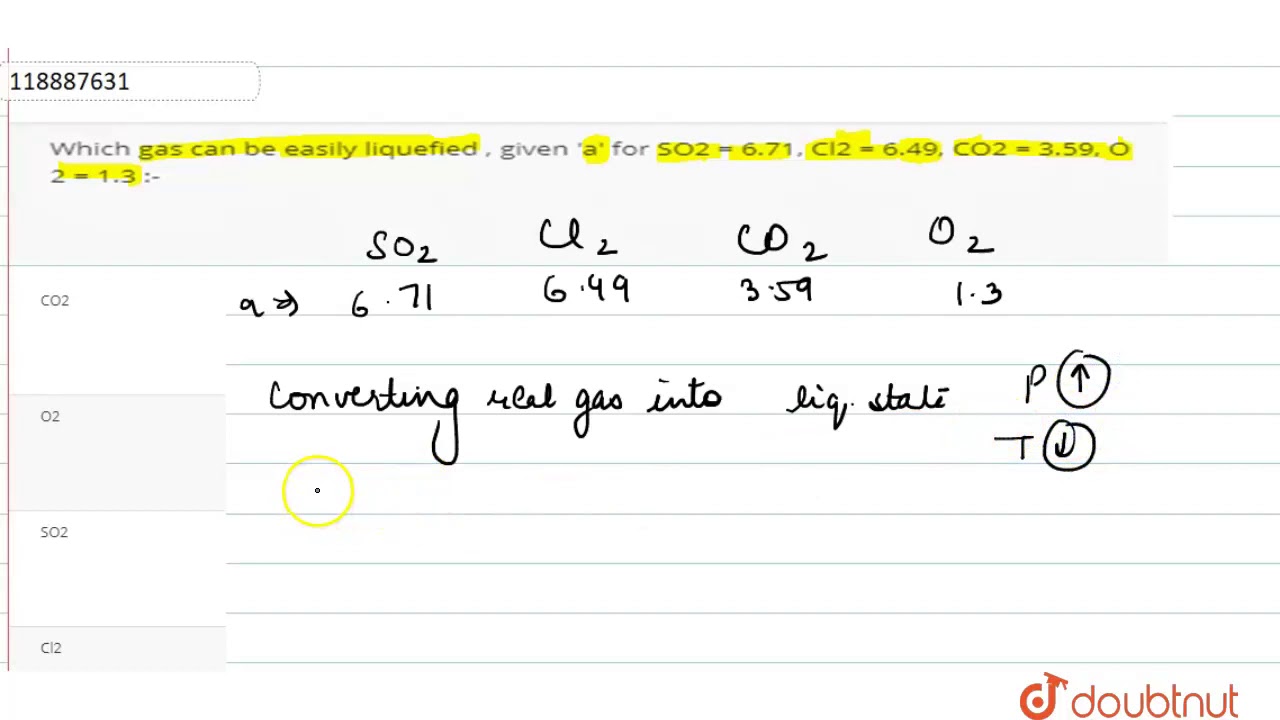 118887631
Which gas can be easily liquefied , given 'a' for SO2 = 6.71, Cl2 = 6.49, CO2 = 3.59, O
2 = 1.3 :-
SO2 Cl2 CO2 O2
a ⇒ 6.71 6.49 3.59 1.3
CO2
Converting real gas into liq. state P ↑
T ↓
O2
SO2
Cl2
doubtnut